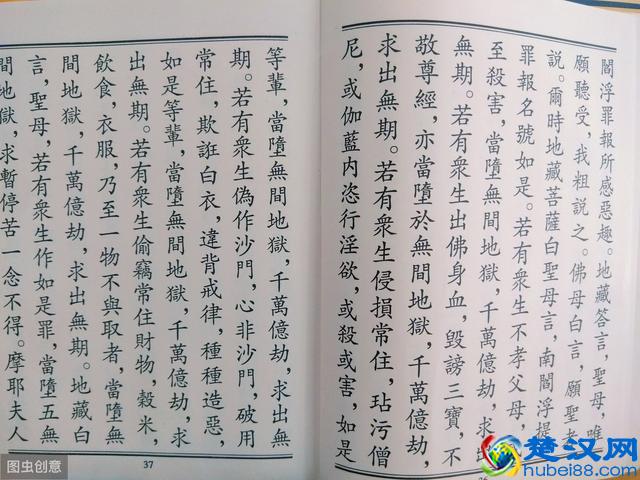 閻浮罪報所感惡趣。地藏答言，聖母，唯
願聽受，我粗說之。佛母白言，願聖者
說。爾時地藏菩薩白聖母言，南閻浮提
罪報名號如是。若有衆生不孝父母，
至殺害，當墮無間地獄，千萬億劫，求出
無期。若有衆生出佛身血，毀謗三寶，不
敬尊經，亦當墮於無間地獄，千萬億劫，
求出無期。若有衆生侵損常住，玷污僧
尼，或伽藍内恣行淫欲，或殺或害，如是
等輩，當墮無間地獄，千萬億劫，求出無
期。若有衆生偽作沙門，心非沙門，破用
常住，欺誑白衣，違背戒律，種種造惡，
如是等輩，當墮無間地獄，千萬億劫，求
出無期。若有衆生偷竊常住財物，穀米，
飲食，衣服，乃至一物不與取者，當墮無
間地獄，千萬億劫，求出無期。地藏白
言，聖母，若有衆生作如是罪，當墮五無
間地獄，求暫停苦一念不得。摩耶夫人
37
图虫创意
楚汉网
hubei88.com